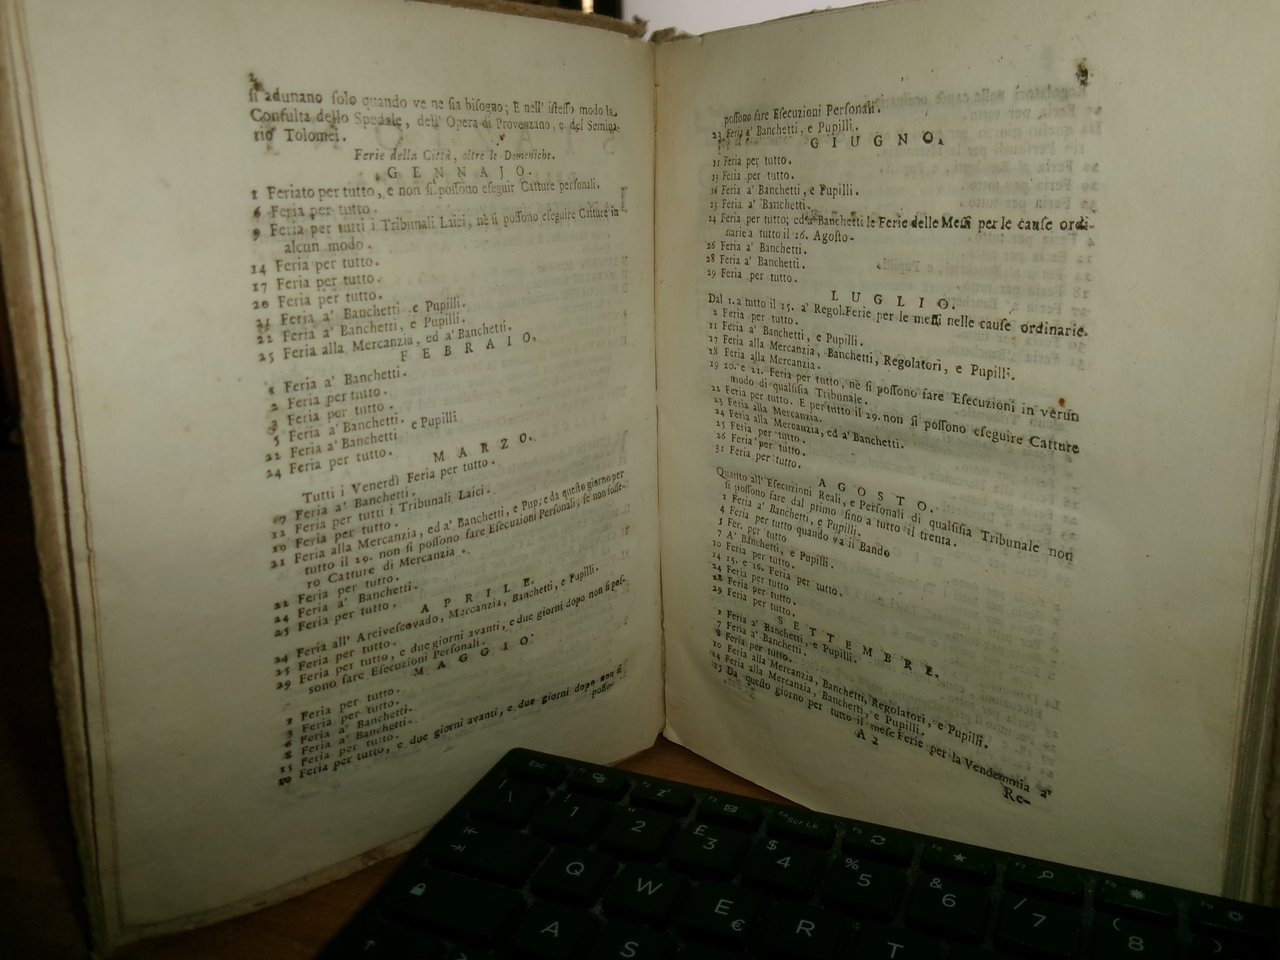 si adunano solo quando ve ne sia bisogno; E nell' istesso modo la
Consulta dello Spedale, dell' Opera di Provenzano, e del Semina-
rio Tolomei.
Ferie della Città, oltre le Domeniche.
GENNAJO.
1 Feriato per tutto, e non si possono eseguir Catture personali.
6 Feria per tutto.
9 Feria per tutti i Tribunali Laici, nè si possono eseguire Catture in
alcun modo.
14 Feria per tutto.
17 Feria per tutto.
20 Feria per tutto.
21 Feria a' Banchetti, e Pupilli.
22 Feria a' Banchetti, e Pupilli.
25 Feria alla Mercanzia, ed a' Banchetti.
FEBRAIO.
1 Feria a' Banchetti.
2 Feria per tutto.
3 Feria per tutto.
5 Feria a' Banchetti.
22 Feria a' Banchetti e Pupilli
24 Feria per tutto.
MARZO.
Tutti i Venerdì Feria per tutto.
7 Feria a' Banchetti.
12 Feria per tutti i Tribunali Laici.
19 Feria per tutto.
21 Feria alla Mercanzia, ed a' Banchetti, e Pup; e da questo giorno per
tutto il 29. non si possono fare Esecuzioni Personali, se non fosse-
ro Catture di Mercanzia.
22 Feria per tutto.
24 Feria a' Banchetti.
25 Feria per tutto.
APRILE.
24 Feria all' Arcivescovado, Mercanzia, Banchetti, e Pupilli.
25 Feria per tutto.
29 Feria per tutto, e due giorni avanti, e due giorni dopo non si pos-
sono fare Esecuzioni Personali.
MAGGIO
1 Feria per tutto.
3 Feria per tutto.
6 Feria a' Banchetti.
8 Feria a' Banchetti.
15 Feria per tutto.
20 Feria per tutto, e due giorni avanti, e due giorni dopo non si
posso-
possono fare Esecuzioni Personali.
23 Feria a' Banchetti, e Pupilli.
GIUGNO.
11 Feria per tutto.
13 Feria per tutto.
16 Feria a' Banchetti, e Pupilli.
23 Feria a' Banchetti.
24 Feria per tutto; ed a' Banchetti le Ferie delle Messi per le cause ordi-
narie a tutto il 16. Agosto.
26 Feria a' Banchetti.
28 Feria a' Banchetti.
29 Feria per tutto.
LUGLIO.
Dal 1. a tutto il 15. a' Regol. Ferie per le messi nelle cause ordinarie.
2 Feria per tutto.
11 Feria a' Banchetti, e Pupilli.
17 Feria alla Mercanzia, Banchetti, Regolatori, e Pupilli.
18 Feria alla Mercanzia.
19 20. e 21. Feria per tutto, nè si possono fare Esecuzioni in verun
modo di qualsisia Tribunale.
22 Feria per tutto. E per tutto il 29. non si possono eseguire Catture
23 Feria alla Mercanzia.
24 Feria alla Mercanzia, ed a' Banchetti.
25 Feria per tutto.
26 Feria per tutto.
31 Feria per tutto.
AGOSTO.
Quanto all' Esecuzioni Reali, e Personali di qualsisia Tribunale non
si possono fare dal primo sino a tutto il trenta.
1 Feria a' Banchetti, e Pupilli.
4 Feria per tutto quando va il Bando
5 Fer. per tutto
7 A' Banchetti, e Pupilli.
10 Feria per tutto.
14 15. e 16. Feria per tutto.
24 Feria per tutto
28 Feria per tutto.
29 Feria per tutto.
SETTEMBRE.
1 Feria a' Banchetti, e Pupilli.
7 Feria a' Banchetti.
8 Feria per tutto.
10 Feria alla Mercanzia, Banchetti, Regolatori, e Pupilli.
14 Feria alla Mercanzia, Banchetti, e Pupilli.
15 Da questo giorno per tutto il mese Ferie per la Vendemmia a'
A 2
Re-
Esc
Scr Lk
1
2
£ 3
$ 4
% 5
& 6
/ 7
( 8
Q W E € R T
A S